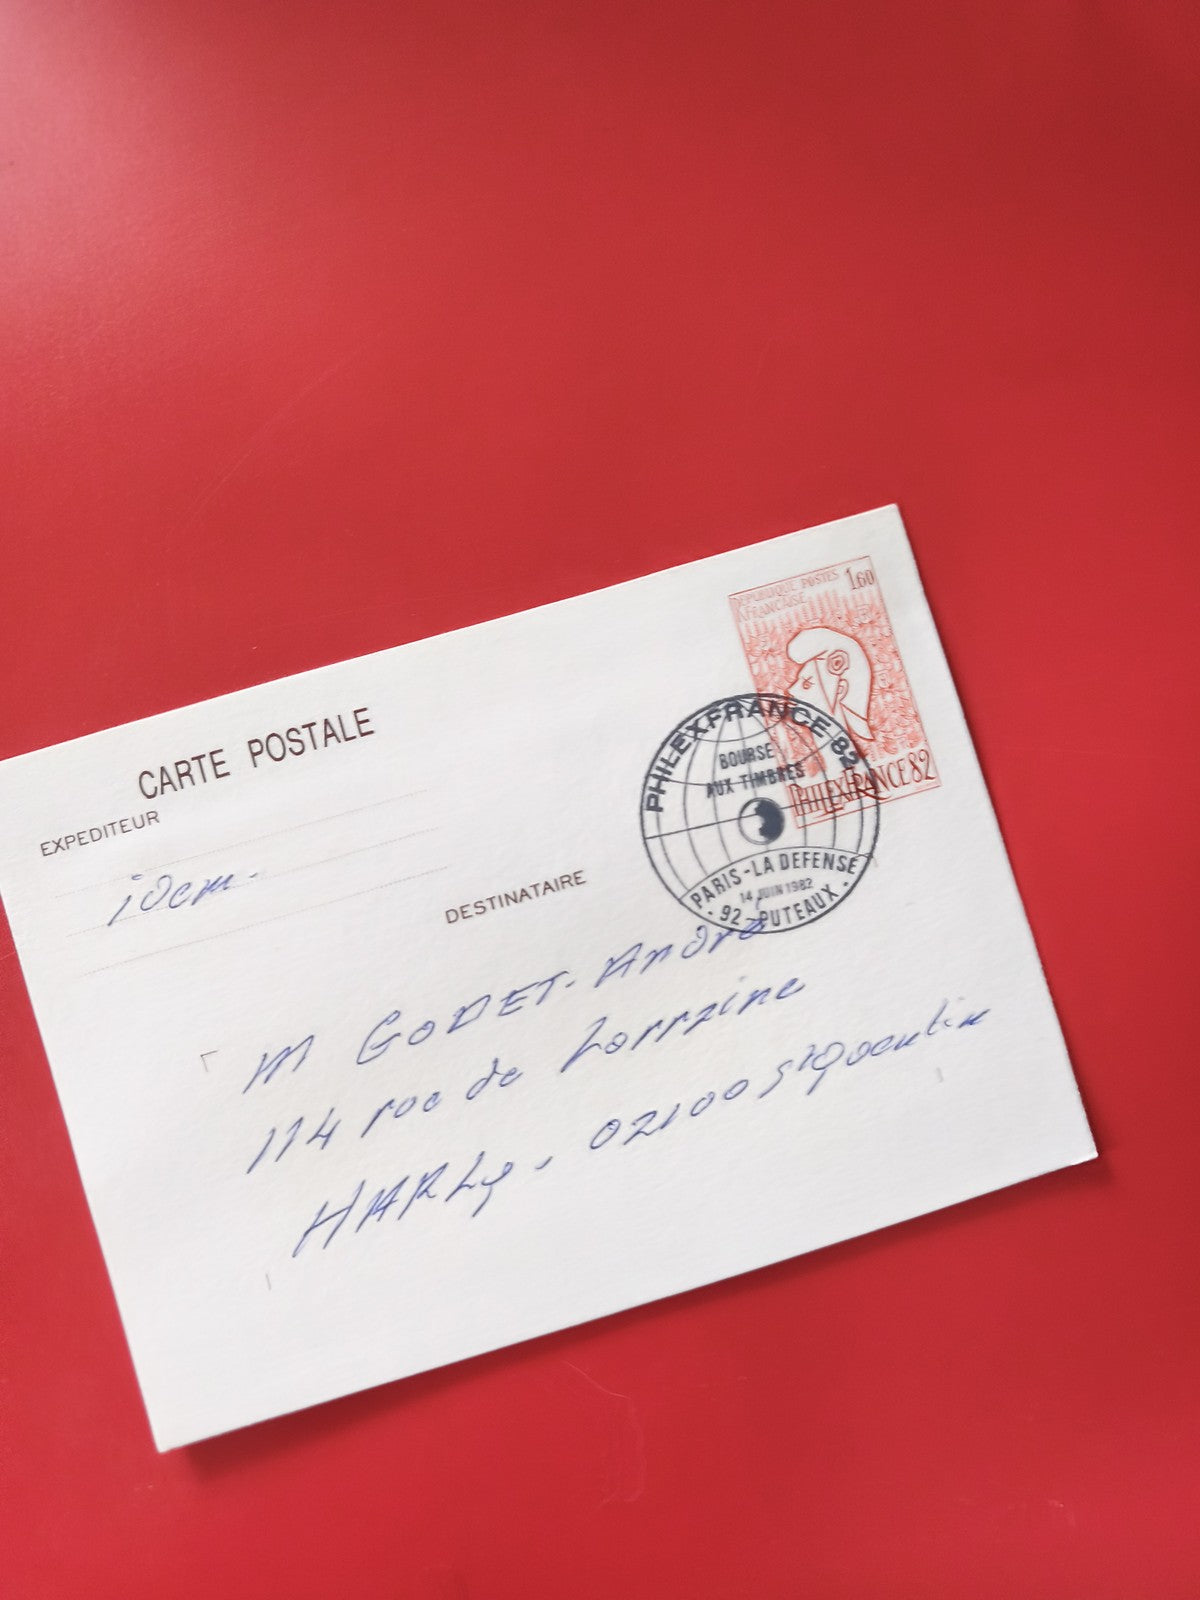 REPUBLIQUE POSTES 1,60
FRANCAISE
PHILEXFRANCE 82
CARTE POSTALE
EXPEDITEUR
idem.
PHILEXFRANCE 82
BOURSE
AUX TIMBRES
PARIS-LA DEFENSE
14 JUIN 1982
· 92-PUTEAUX ·
DESTINATAIRE
M GODET. André
114 rue de Lorraine
HARLy. 02100 St Quentin